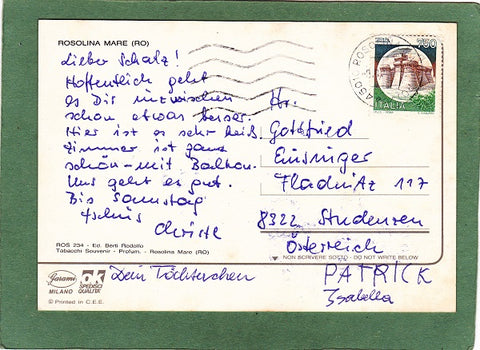 ROSOLINA MARE (RO)
Lieber Schatz!
Hoffentlich geht
es Dir inzwischen
schon etwas besser.
Hier ist es sehr heiß.
Zimmer ist ganz
schön - mit Balkon.
Uns geht es gut.
Bis Samstag
tschüs
Christe
ROS 234 - Ed. Berti Rodolfo
Tabacchi Souvenir - Profum. - Rosolina Mare (RO)
750
ITALIA
Hr.
Gottfried
Einsinger
Fladnitz 117
8322 Studenzen
Österreich
NON SCRIVERE SOTTO - DO NOT WRITE BELOW
Garami
MILANO
OK
SPEDISCI
QUALITA'
© Printed in C.E.E.
Dein Töchterchen
PATRICK
Isabella